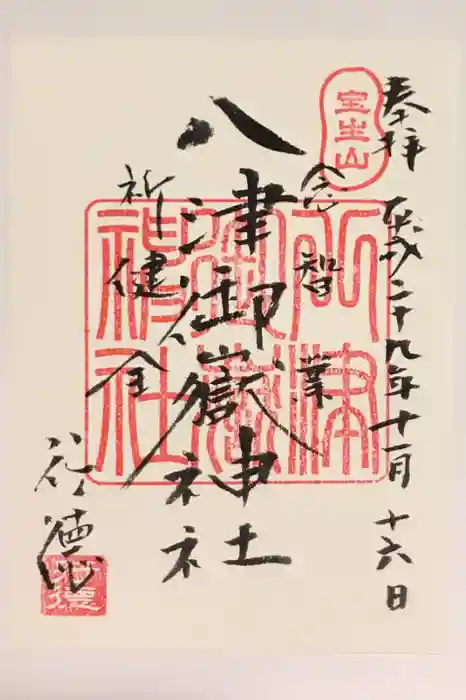 奉拝
平成二十九年十一月十六日
宝生山
念智業
八津御嶽神社
八津御嶽神社
祈健全
行徳